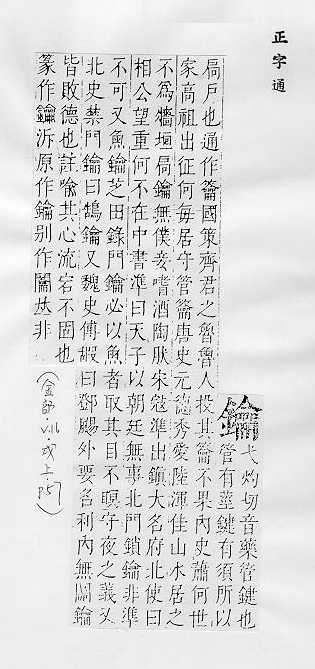 正字通
鑰弋灼切音藥管鍵也
管有莖鍵有須所以
扃戶也通作籥國策齊君之魯魯人投其籥不果內史蕭何世
家高祖出征何每居守管籥唐史元德秀愛陸渾佳山水居之
不為牆垣扃鑰無僕妾嗜酒陶肰宋宼準出鎮大名府北使曰
相公望重何不在中書準曰天子以朝廷無事北門鎖鑰非準
不可又魚鑰芝田錄門鑰必以魚者取其目不瞑守夜之義又
北史禁門鑰曰鵠鑰又魏史傅嘏曰鄧颺外要名利內無關鑰
皆敗德也註喻其心流宕不固也
篆作鑰泝原作鑰别作非
(金部·VII·戌上 P57)